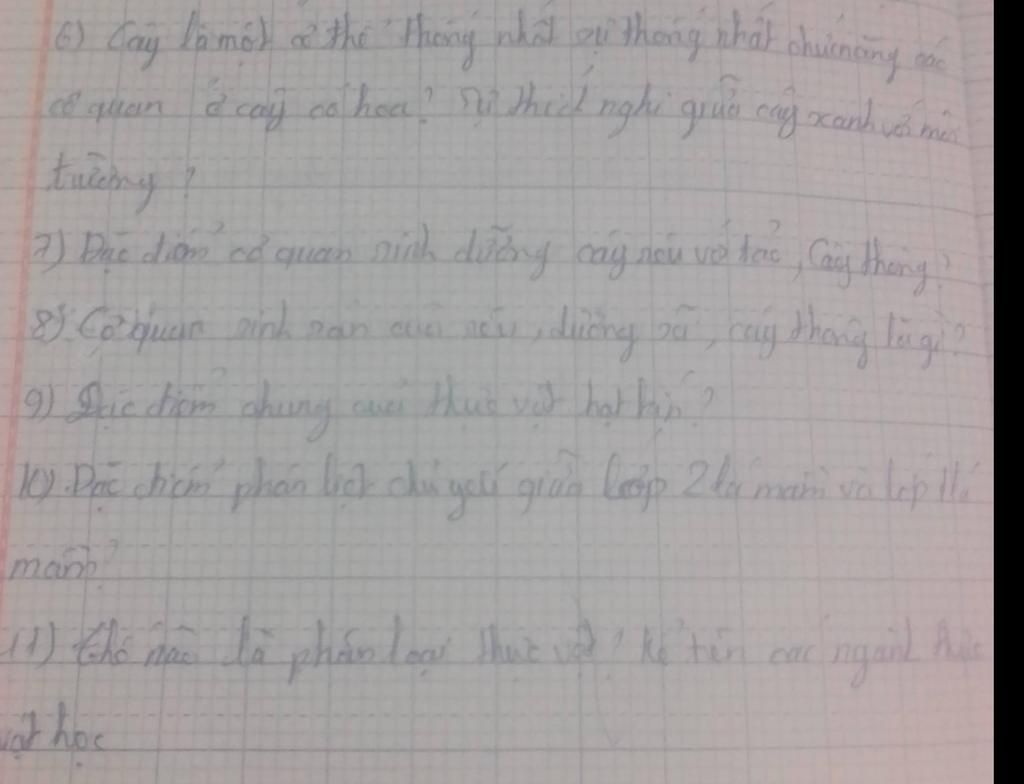 6) Cây là một cơ thể thống nhất sự thống nhất chức năng các
cơ quan ở cây có hoa? Sự thích nghi giữa cây xanh với môi
trường?
7) Đặc điểm cơ quan sinh dưỡng cây rêu với tảo, Cây thông?
8) Cơ quan sinh sản của rêu, dương xỉ, cây thông là gì?
9) Đặc điểm chung của thực vật hạt kín?
10) Đặc điểm phân biệt chủ yếu giữa lớp 2 lá mầm và lớp 1 lá
mầm?
11) thế nào là phân loại thực vật? kể tên các ngành thực
vật học